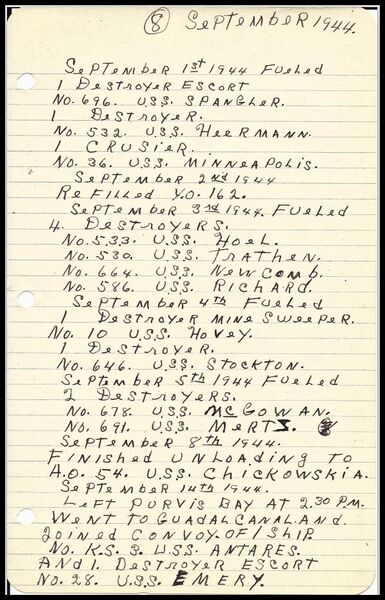 8 September 1944.
September 1st 1944 Fueled
1 Destroyer Escort
No. 696. U.S.S. Spangler.
1 Destroyer.
No. 532. U.S.S. Heermann.
1 Crusier.
No. 36. U.S.S. Minneapolis.
September 2nd 1944
Refilled Y.O. 162.
September 3rd 1944. Fueled
4. Destroyers.
No. 533. U.S.S. Hoel.
No. 530. U.S.S. Trathen.
No. 664. U.S.S. Newcomb.
No. 586. U.S.S. Richard.
September 4th Fueled
1 Destroyer Mine Sweeper.
No. 10 U.S.S. Hovey.
1 Destroyer.
No. 646. U.S.S. Stockton.
September 5th 1944 Fueled
2 Destroyers.
No. 678. U.S.S. McGowan.
No. 691. U.S.S. Mertz.
September 8th 1944.
Finished unloading to
A.O. 54. U.S.S. Chickowskia.
September 14th 1944.
Left Purvis Bay at 2.30 P.M.
Went to Guadalcanaland.
Joined convoy. of 1 ship
No. K.S. 3. U.S.S. Antares.
And 1. Destroyer Escort
No. 28. U.S.S. Emery.